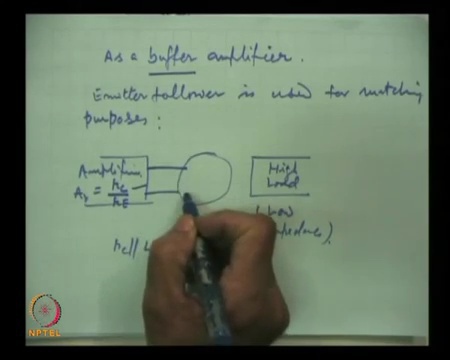 As a buffer amplifier.
Emitter follower is used for matching
purposes:
Amplifier
Av = RC / RE
High
Load
(Low
RC||
NPTEL